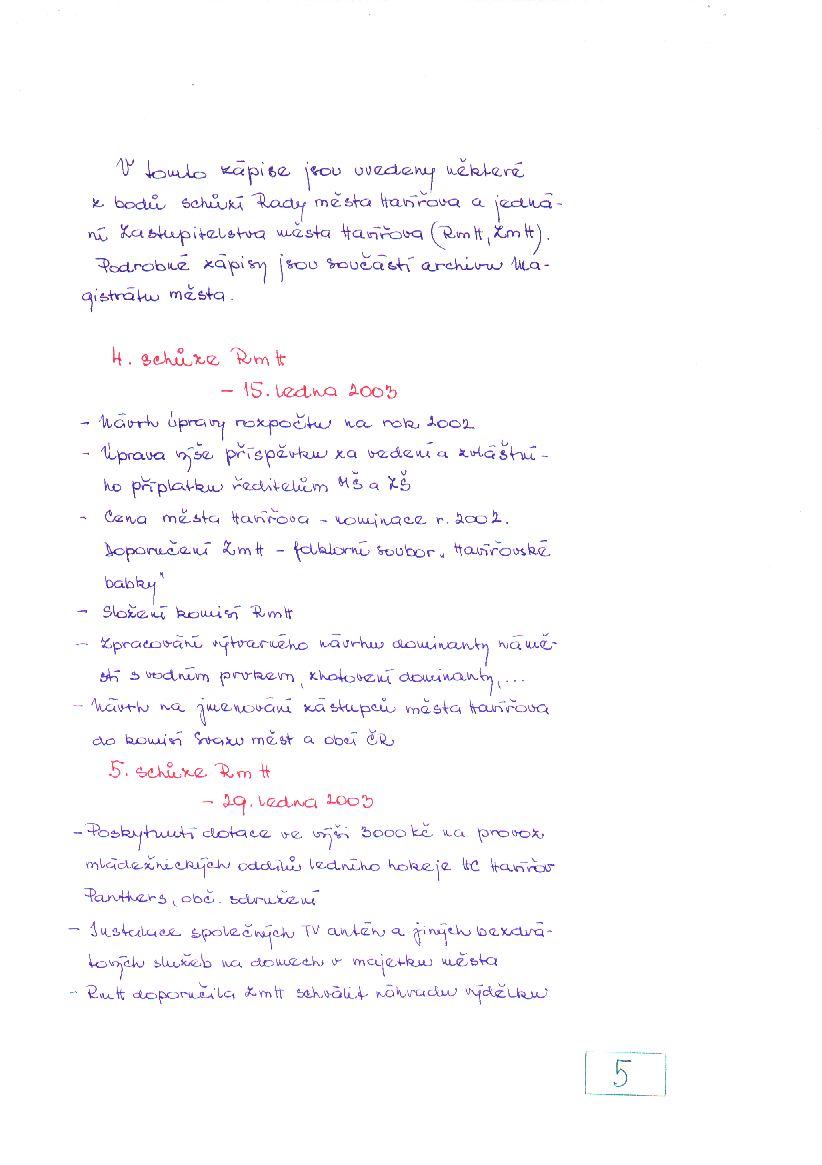 V tomto zápise jsou uvedeny některé
z bodů schůzí Rady města Havířova a jedná-
ní Zastupitelstva města Havířova (RmH, ZmH).
Podrobné zápisy jsou součástí archivu Ma-
gistrátu města.
4. schůze RmH
- 15. ledna 2003
- Návrh úpravy rozpočtu na rok 2002
- Úprava výše příspěvku za vedení a zvláštní-
ho příplatku ředitelům MŠ a ZŠ
- Cena města Havířova - nominace r. 2002.
Doporučení ZmH - folklorní soubor „Havířovské
babky"
- Složení komisí RmH
- Zpracování výtvarného návrhu dominanty námě-
stí s vodním prvkem, zhotovení dominanty,...
- Návrh na jmenování zástupců města Havířova
do komisí Svazu měst a obcí ČR
5. schůze RmH
- 29. ledna 2003
- Poskytnutí dotace ve výši 3000 kč na provoz
mládežnických oddílů ledního hokeje HC Havířov
Panthers, obč. sdružení
- Instalace společných TV antén a jiných bezdrá-
tových služeb na domech v majetku města
- RmH doporučila ZmH schválit náhradu výdělku
5